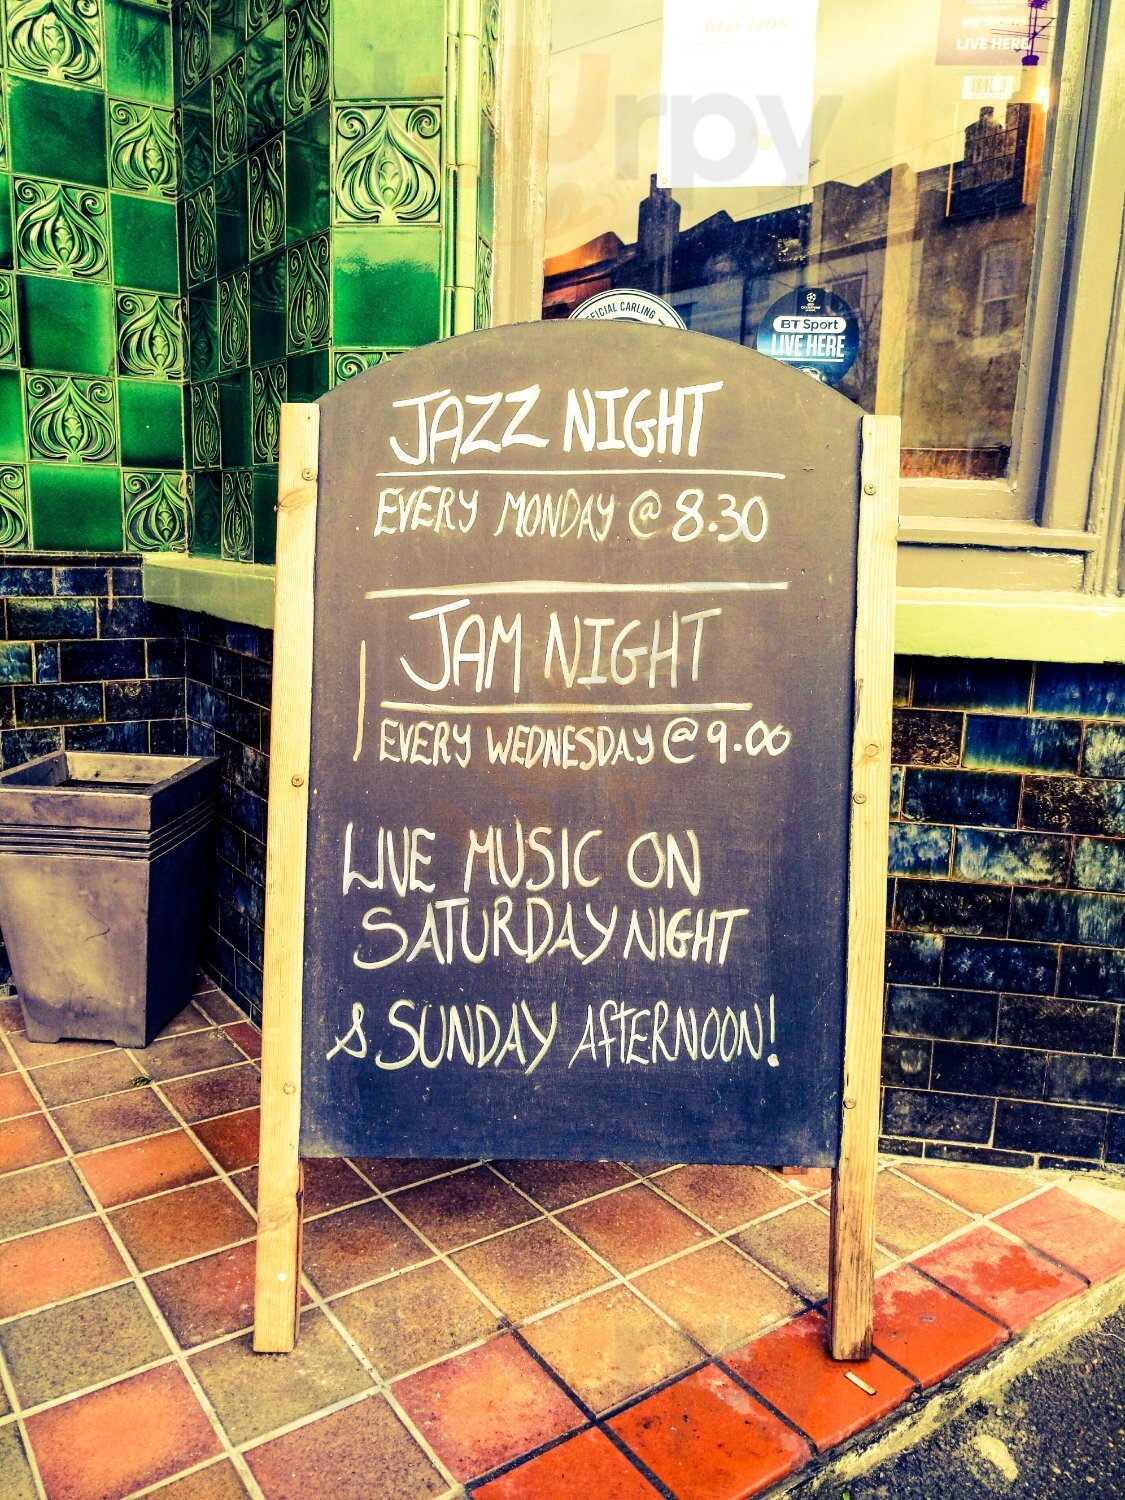 RED LION
LIVE HERE
urpy
FICIAL CARLING
BT Sport
LIVE HERE
JAZZ NIGHT
EVERY MONDAY @ 8.30
JAM NIGHT
EVERY WEDNESDAY @ 9.00
LIVE MUSIC ON
SATURDAY NIGHT
& SUNDAY AFTERNOON!